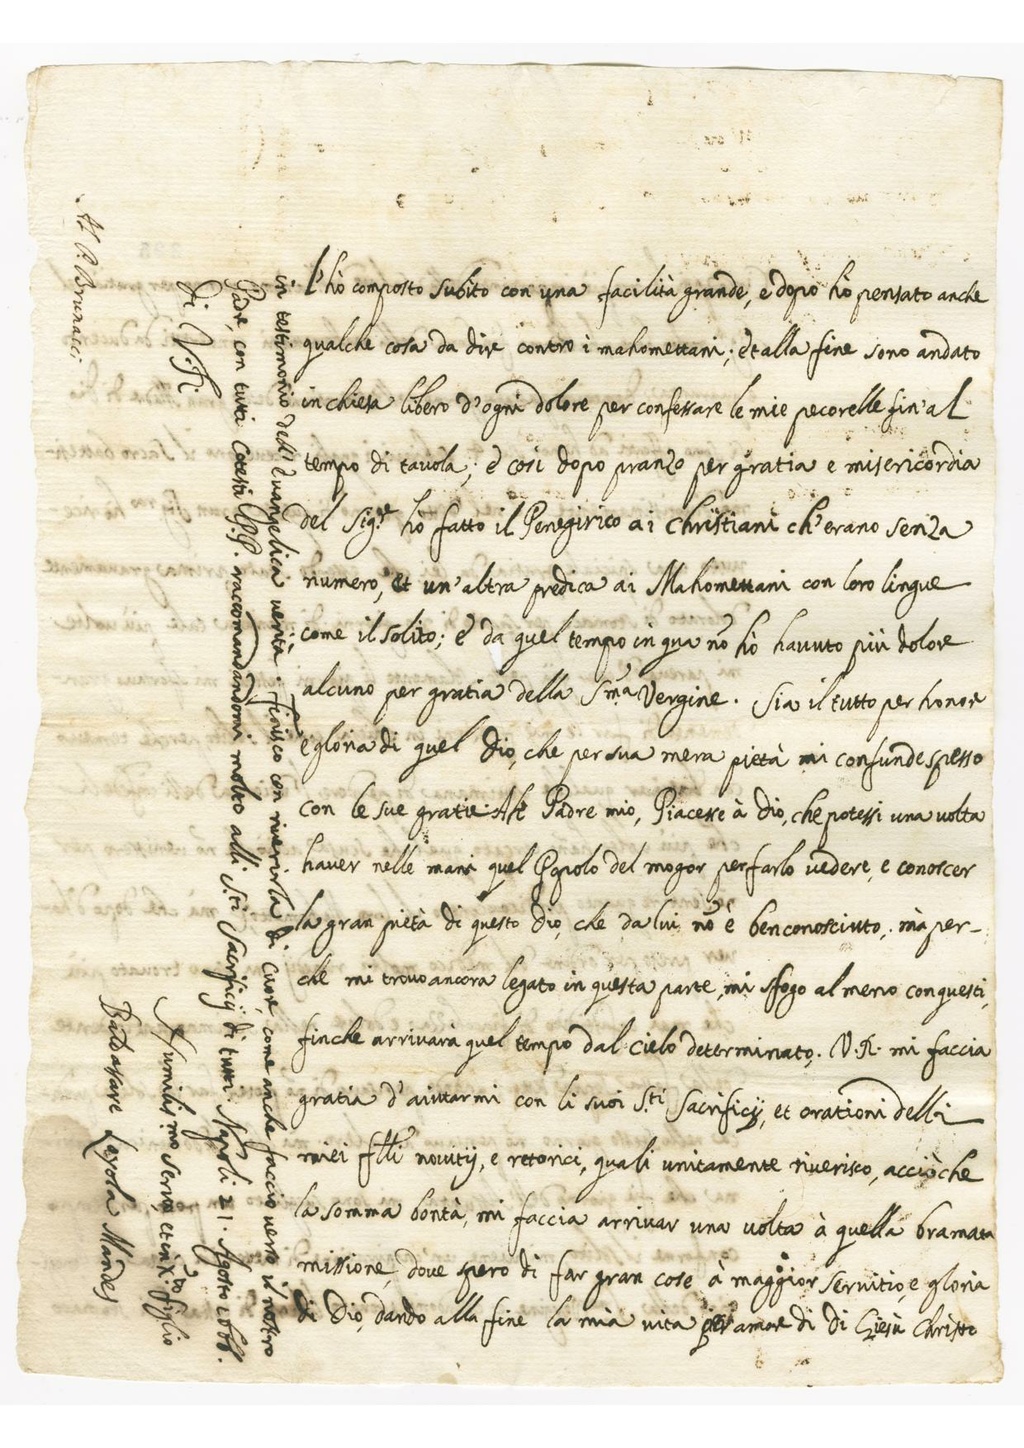 l'hò composto subito con una facilità grande, e dopo hò pensato anche
qualche cosa da dire contro i mahomettani; et alla fine sono andato
in chiesa libero d'ogni dolore per confessare le mie pecorelle fin'al
tempo di tavola; e così dopo pranzo per gratia e misericordia
del Sig.re hò fatto il Penegirico ai Christiani ch'erano senza
numero, et un'altra predica ai Mahomettani con loro lingue
come il solito; e da quel tempo in qua nõ hò havuto più dolore
alcuno per gratia della S.ma Vergine. Sia il tutto per honore
e gloria di quel Dio, che per sua mera pietà mi confunde spesso
con le sue gratie. Ah Padre mio, Piacesse à Dio, che potessi una volta
haver nelle mani quel Popolo del mogor per farlo vedere, e conoscer
la gran pietà di questo Dio, che da lui nõ è ben conosciuto, mà per-
che mi trovo ancora legato in questa parte, mi sfogo al meno con questi,
finche arrivarà quel tempo dal cielo determinato. V.R. mi faccia
gratia d'aiutarmi con li suoi S.ti Sacrificij, et orationi delli
miei flli novitij, e retorici, quali unitamente riverisco, acciò che
la somma bontà, mi faccia arrivar una volta à quella bramata
missione, dove spero di far gran cose à maggior servitio, e gloria
di Dio, dando alla fine la mia vita per amor di di Giesù Christo
in testimonio dell'Evangelica verità. Finisco con riverirla di Cuore, come anche faccio verso il nostro
Padre, con tutti cotesti PP. racomandandomi molto alli S.ti Sacrificij di tutti. Napoli 21. Agosto 1666.
Di V.R.
Humilis.mo servo, et in X.o figlio
Baldassare Loyola Mandes
Al P. Brunacci